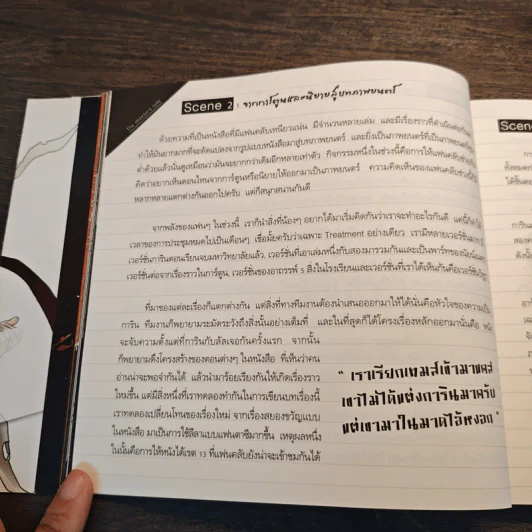 The director's note
Scene 2 : จากการ์ตูนและนิยายสู่บทภาพยนตร์
ด้วยความที่เป็นหนังสือที่มีแฟนคลับเหนียวแน่น มีจำนวนหลายเล่ม และมีเรื่องราวที่ดำเนินต่อกัน
ทำให้มันยากมากที่จะดัดแปลงจากรูปแบบหนังสือมาสู่บทภาพยนตร์ และยิ่งเป็นภาพยนตร์ที่เป็นภาพยนตร์
ต่ำด้วยแล้วนั้นดูเหมือนว่ามันจะยากกว่าเดิมอีกหลายเท่าตัว กิจกรรมหนึ่งในช่วงนี้คือการให้แฟนคลับช่วย
คิดว่าอยากเห็นตอนไหนจากการ์ตูนหรือนิยายให้ออกมาเป็นภาพยนตร์ ความคิดเห็นของแฟนคลับช่วงนี้
หลากหลายแตกต่างกันออกไปครับ แต่ก็สนุกสนานกันดี
จากพลังของแฟนๆ ในช่วงนี้ เราก็นำสิ่งที่น้องๆ อยากได้มาเริ่มคิดกันว่าเราจะทำอะไรกันดี แค่นี้ก็
เวลาของการประชุมหมดไปเป็นเดือนๆ เชื่อมั้ยครับว่าเฉพาะ Treatment อย่างเดียว เรามีหลายเวอร์ชั่นมาก
เวอร์ชั่นการินตอนเรียนจบมหาวิทยาลัยแล้ว เวอร์ชั่นที่เอาเล่มหนึ่งกับสองมารวมกันและเป็นพาร์ทของ
เวอร์ชั่นต่อจากเรื่องราวในการ์ตูน เวอร์ชั่นของอาถรรพ์ 5 สิ่งในโรงเรียนและเวอร์ชั่นที่เราได้เห็นกันคือเวอร์ชั่น
ที่มาของแต่ละเรื่องก็แตกต่างกัน แต่สิ่งที่ทางทีมงานต้องนำเสนอออกมาให้ได้นั่นคือหัวใจของความเป็น
การิน ทีมงานก็พยายามระมัดระวังถึงสิ่งนั้นอย่างเต็มที่ และในที่สุดก็ได้โครงเรื่องหลักออกมานั่นคือ หนัง
จะจับความตั้งแต่ที่การินกับลัลเจอกันครั้งแรก จากนั้น
ก็พยายามดึงโครงสร้างของตอนต่างๆ ในหนังสือ ที่เห็นว่าคน
อ่านน่าจะพอจำกันได้ แล้วนำมาร้อยเรียงกันให้เกิดเรื่องราว
ใหม่ขึ้น แต่มีสิ่งหนึ่งที่เราตกลงทำกันในการเขียนบทเรื่องนี้
เราทดลองเปลี่ยนโทนของเรื่องใหม่ จากเรื่องสยองขวัญแบบ
ในหนังสือ มาเป็นการใช้สีลาแบบแฟนตาซีมากขึ้น เหตุผลหนึ่ง
ในนั้นคือการให้หนังได้เรต 13 ที่แฟนคลับยังน่าจะเข้าชมกันได้
" เราเรียกเกมส์เข้ามาแคส
เขาไม่ได้แต่งการินมาครับ
แต่เขามาในมาดไอ้หงอก "
Scene